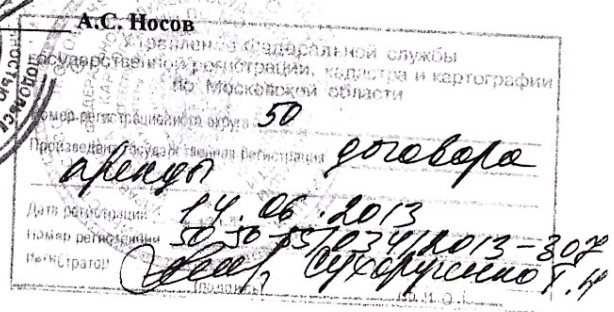 А.С. Носов
Управление Федеральной службы
государственной регистрации, кадастра и картографии
по Московской области
Номер регистрационного округа 50
Произведена государственная регистрация договора
аренды
Дата регистрации 14.06.2013
Номер регистрации 50-50-/034/2013-307
Регистратор Сухорученко Т.Н
(подпись) (Ф.И.О.)